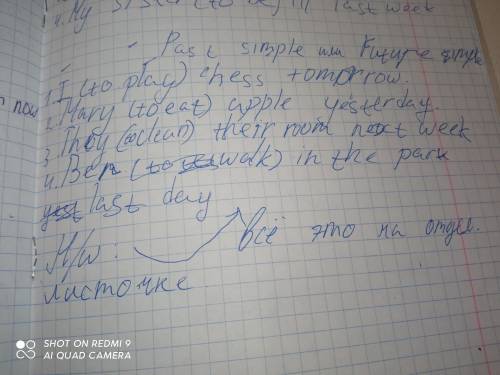 4. My sister (to be) ill last week
- Past simple или Future simple
1. I (to play) chess tomorrow.
n now
2. Mary (to eat) apple yesterday.
3. They (to clean) their room next week
4. Ben (to walk) in the park
last day
H/w:
Всё это на отдел.
листочке
SHOT ON REDMI 9
AI QUAD CAMERA